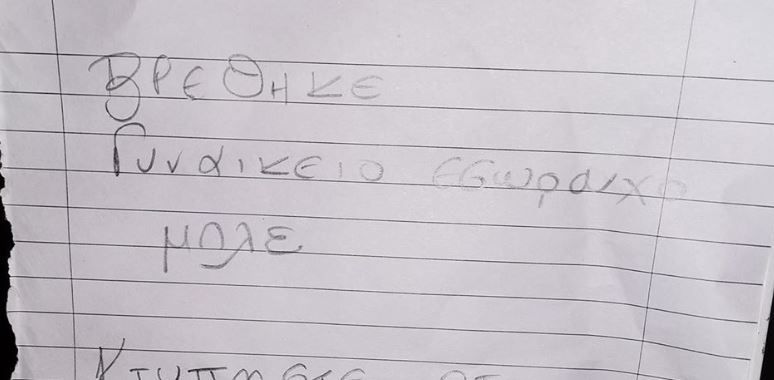 ΒΡΕΘΗΚΕ
Γυναικειο εσωραιχο
μπλε